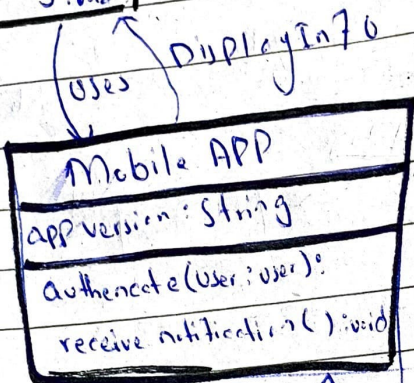 Display Info
uses
Mobile APP
app version : String
authencate (user : user) :
receive notification ( ) : void